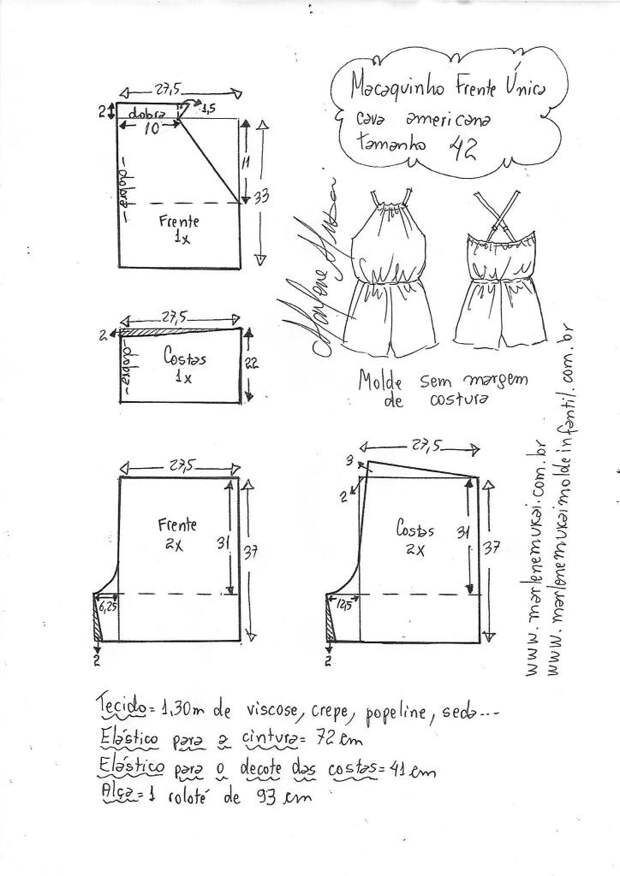 Macaquinho Frente Única
cava americana
tamanho 42
27,5
1,5
2
dobra
10
-dobra-
11
33
Frente
1x
Marlene Mukai
27,5
2
-dobra-
Costas
1x
22
Molde sem margem
de costura
27,5
Frente
2x
31
37
6,25
2
27,5
3
2
Costas
2x
31
37
12,5
2
www.marlenemukai.com.br
www.marlenemukaimoldeinfantil.com.br
Tecido=1,30m de viscose, crepe, popeline, seda...
Elástico para a cintura=72cm
Elástico para o decote das costas=41cm
Alça=1 roloté de 93cm